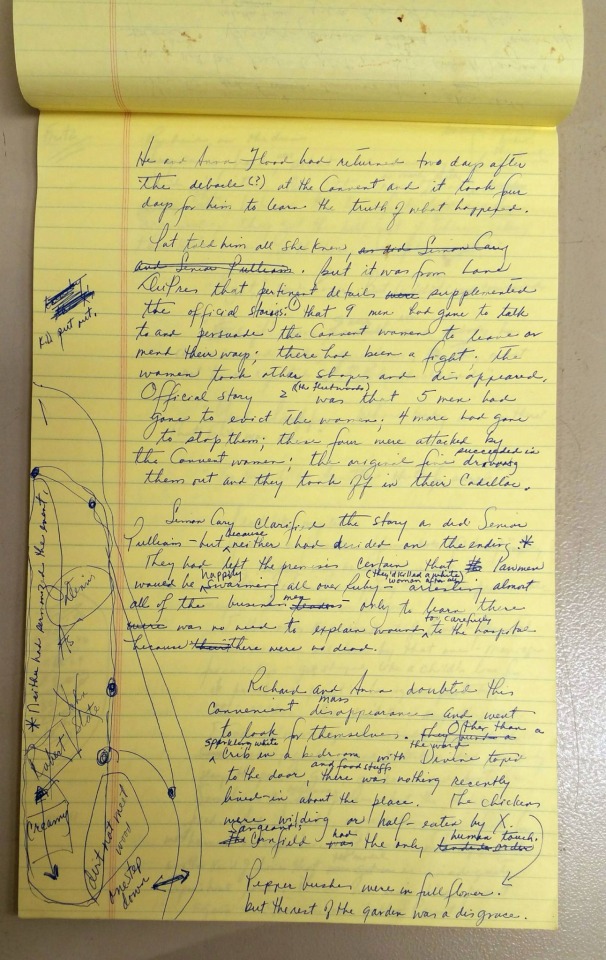 He and Anna Flood had returned two days after
the debacle(?) at the Convent and it took four
days for him to learn the truth of what happened.
Pat told him all she knew, as did Simon Cary
and Senior Pulliam. but it was from Lone
DuPres that pertinent details were supplemented
the official storys: that 9 men had gone to talk
to and persuade the Convent women to leave or
mend their ways; there had been a fight; the
women took other shapes and disappeared.
(the Fleetwoods)
Official story 2 was that 5 men had
gone to evict the women; 4 more had gone
to stop them; these four were attacked by
the Convent women; the original five succeeded in droving
them out and they took off in their Cadillac.
Simon Cary clarified the story as did Senior
Pulliam - but because neither had decided on the ending *
They had left the premises certain that lawmen
would be happily swarming all over Ruby - (they'd killed a white woman after all) arresting almost
all of the business men leaders - only to learn there
were was no need to carefully explain wounds to the hospital
because there were no dead.
Richard and Anna doubted this
convenient mass disappearance and went
to look for themselves. Other than a
sparkling white crib in a bedroom with the word Devine taped
to the door, and foodstuffs there was nothing recently
lived-in about the place. The chickens
were wilding or half-eaten by X.
Cornfield had was the only human touch.
Pepper bushes were in full flower.
but the rest of the garden was a disgrace.
Kd put out.
* Neither had survived the event.
Creamy
dirt not next
wood
one step
down